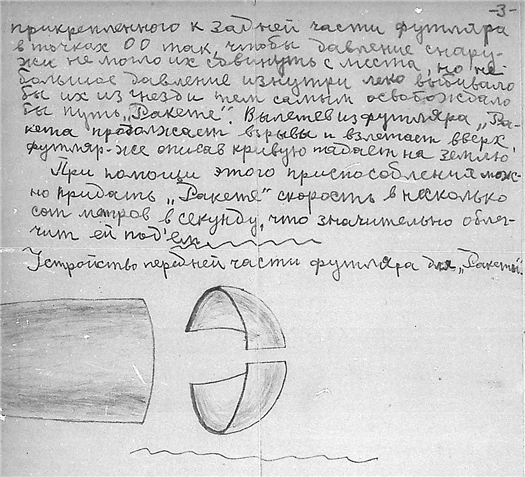 -3-
прикрепленного к задней части футляра
в точках ОО так, чтобы давление снару-
жи не могло их сдвинуть с места, но не-
большое давление изнутри легко выбивало
бы их из гнезд и тем самым освобождало
бы путь „Ракете". Вылетев из футляра „Ра-
кета продолжает взрывы и взлетает вверх,
футляр-же описав кривую падает на землю
При помощи этого приспособления мож-
но придать „Ракете" скорость в несколько
сот метров в секунду, что значительно облег-
чит ей под'ем
Устройство передней части футляра для „Ракеты".